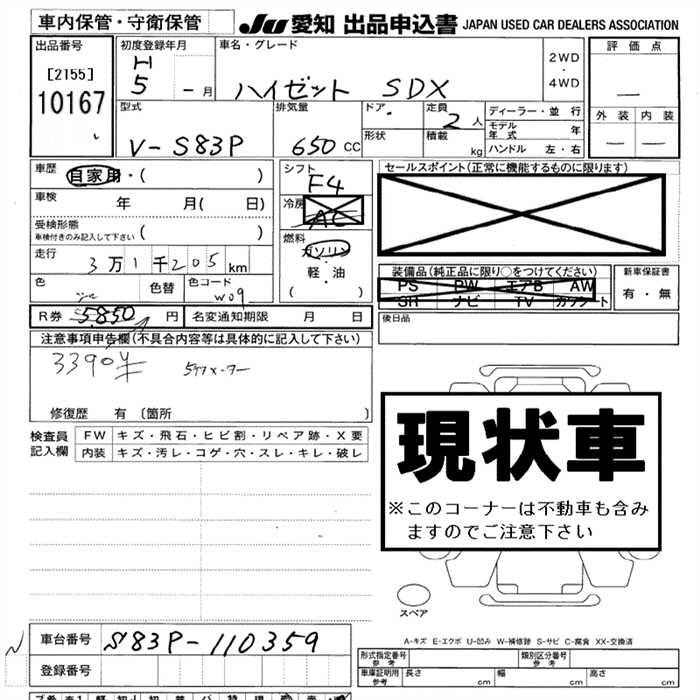 車内保管・守衛保管
JU 愛知 出品申込書 JAPAN USED CAR DEALERS ASSOCIATION
出品番号
[2155]
10167
初度登録年月
H
5 - 月
車名・グレード
ハイゼット SDX
2WD
・
4WD
評価点
—
外装 内装
— —
型式
V-S83P
排気量
650 CC
ドア・
形状
定員 2人
積載 kg
ディーラー・並行
モデル年式 年
ハンドル 左・右
車歴
自家用・( )
車検 年 月( 日)
受検形態
車検付きのみ記入して下さい ( )
走行
3万1千205km
色
色替
色コード
W09
シフト
F4
冷房
AC
燃料
ガソリン
・
軽・油
( )
セールスポイント(正常に機能するものに限ります)
装備品(純正品に限り○をつけてください)
PS PW エアB AW
SR ナビ TV カワシート
新車保証書
有・無
後日品
R券 5,850 円
名変通知期限 月 日
注意事項申告欄(不具合内容等は具体的に記入して下さい)
修復歴 有 〔箇所 〕
検査員
記入欄
FW キズ・飛石・ヒビ割・リペア跡・X要
内装 キズ・汚レ・コゲ・穴・スレ・キレ・破レ
現状車
※このコーナーは不動車も含み
ますのでご注意下さい
スペア
A-キズ E-エクボ U-凹み W-補修跡 S-サビ C-腐食 XX-交換済
車台番号 S83P-110359
登録番号
形式指定番号
参考
類別区分番号
参考
車庫証明用
参考
長さ cm 幅 cm 高さ cm